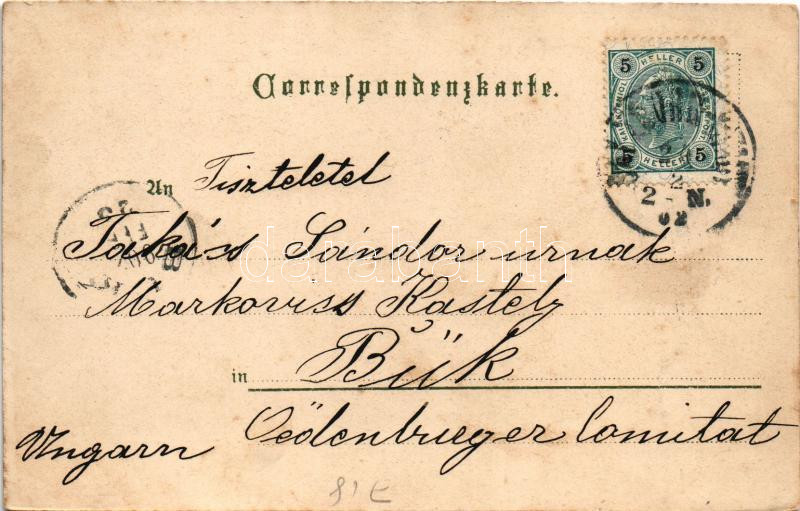 Correspondenzkarte.
5 HELLER 5
5 HELLER 5
2 - N.
02
An Tiszteletel
Takáss Sándor urnak
Markoviss Kastely
in Bük
Ungarn Oedenburger Comitat
darabanth